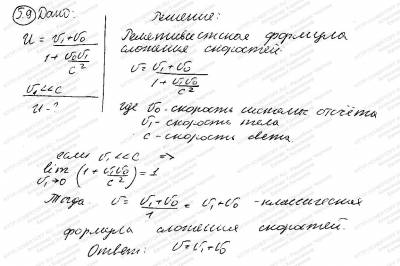 5.9 Дано: Решение:
u = (v₁ + v₀) / (1 + v₀v₁/c²)
v₁ << c
u - ?
Релятивистская формула
сложения скоростей:
v = (v₁ + v₀) / (1 + v₁v₀/c²)
где v₀ - скорость системы отсчёта
v₁ - скорость тела
c - скорость света.
если v₁ << c =>
lim v₁→0 (1 + v₁v₀/c²) = 1
Тогда v = (v₁ + v₀)/1 = v₁ + v₀ - классическая
формула сложения скоростей.
Ответ: v = v₁ + v₀